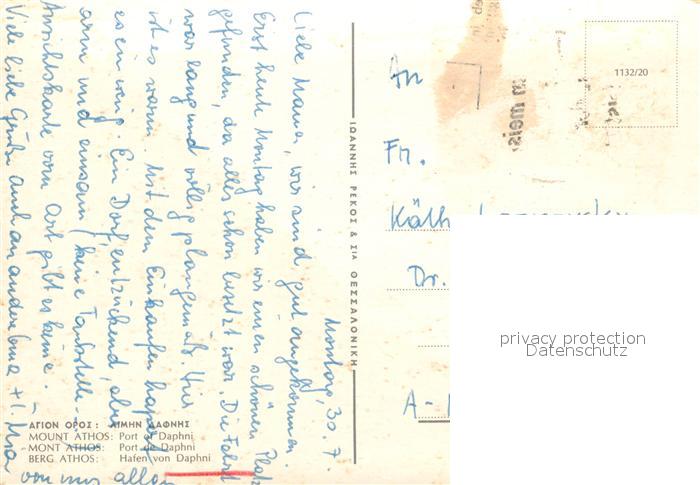 Montag, 30. 7.
Liebe Mama, wir sind gut angekommen.
Erst heute Montag haben wir einen schönen Platz
gefunden, da alles schon besetzt war. Die Fahrt
war lang und völlig plangemäß. Hier
ist es warm. Mit dem Einkaufen hapert
es ein wenig. Ein Dorf, entzückend, aber
arm und einsam (keine Tankstelle –
Ansichtskarte vom Ort gibt es keine.
Viele liebe Grüße auch an andere Oma + 
von uns allen
ΑΓΙΟΝ ΟΡΟΣ: ΛΙΜΗΝ ΔΑΦΝΗΣ
MOUNT ATHOS: Port of Daphni
MONT ATHOS: Port de Daphni
BERG ATHOS: Hafen von Daphni
ΙΩΑΝΝΗΣ ΡΕΚΟΣ & ΣΙΑ ΘΕΣΣΑΛΟΝΙΚΗ
1132/20
An
Fr.
Käth
Dr.
A-
privacy protection
Datenschutz